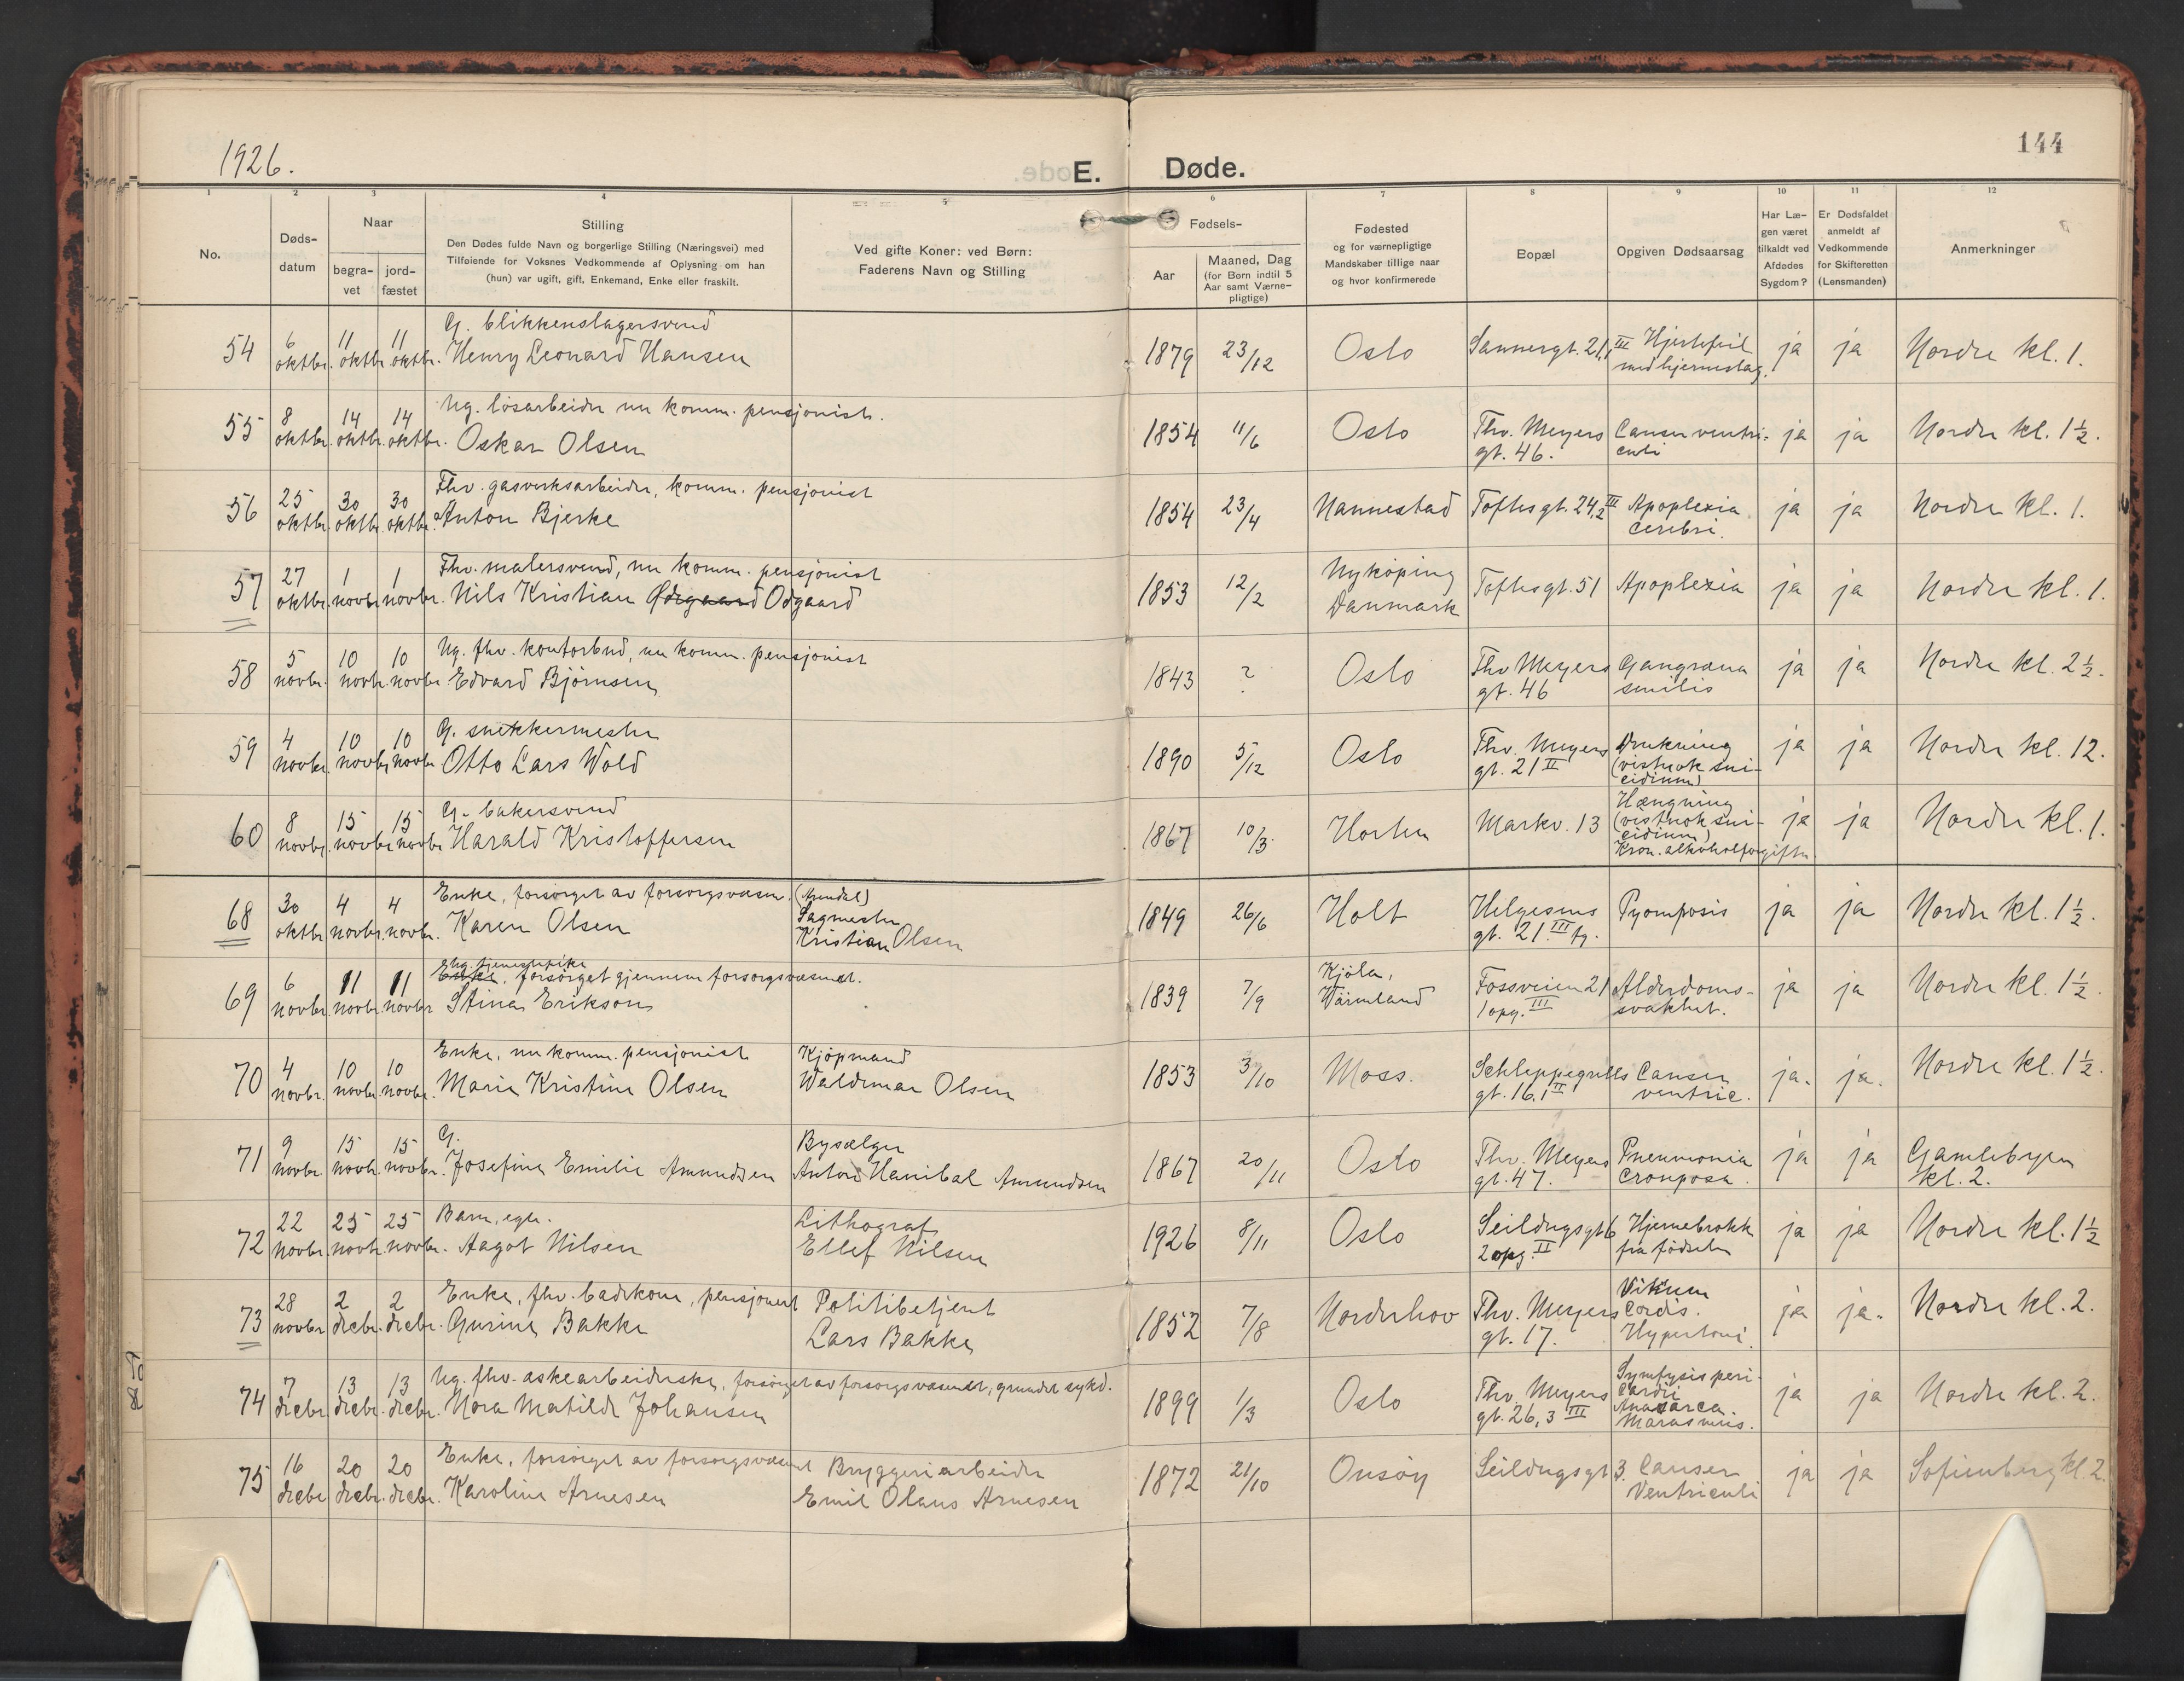 1926.
E. Døde.
144
1 2 3 4 5 6 7 8 9 10 11 12
No.
Døds-
datum
Naar
begra-
vet
jord-
fæstet
Stilling
Den Dødes fulde Navn og borgerlige Stilling (Næringsvei) med
Tilføiende for Voksnes Vedkommende af Oplysning om han
(hun) var ugift, gift, Enkemand, Enke eller fraskilt.
Ved gifte Koner: ved Børn:
Faderens Navn og Stilling
Fødsels-
Aar
Maaned, Dag
(for Børn indtil 5
Aar samt Værne-
pligtige)
Fødested
og for værnepligtige
Mandskaber tillige naar
og hvor konfirmerede
Bopæl
Opgiven Dødsaarsag
Har Læ-
gen været
tilkaldt ved
Afdødes
Sygdom?
Er Dødsfaldet
anmeldt af
Vedkommende
for Skifteretten
(Lensmanden)
Anmerkninger
G. blikkenslagersvend
54 6 oktbr. 11 oktbr. 11 oktbr. Henry Leonard Hansen 1879 23/12 Oslo Sannergt. 21,1 III Hjertefeil ja ja Nordre kl. 1.
med hjerneslag.
Ug. løsarbeider nu komm. pensjonist.
55 8 oktbr. 14 oktbr. 14 oktbr. Oskar Olsen 1854 11/6 Oslo Thv. Meyers Cancer ventri- ja ja Nordre kl. 1 1/2.
gt. 46. culi
Fhv. gasverksarbeider, komm. pensjonist
56 25 oktbr. 30 oktbr. 30 oktbr. Anton Bjerke 1854 23/4 Nannestad Toftesgt. 24,2 III Apoplexia ja ja Nordre kl. 1.
cerebri.
Fhv. malersvend, nu komm. pensjonist
57 27 oktbr. 1 novbr. 1 novbr. Nils Kristian Ødegaard Odgaard 1853 12/2 Nykøping Toftesgt. 51 Apoplexia ja ja Nordre kl. 1.
Danmark
Ug. fhv. kontorbud, nu komm. pensjonist
58 5 novbr. 10 novbr. 10 novbr. Edvard Bjørnsen 1843 ? Oslo Thv Meyers Gangræna ja ja Nordre kl. 2 1/2.
gt. 46 senilis
G. snekkermester
59 4 novbr. 10 novbr. 10 novbr. Otto Lars Wold 1890 5/12 Oslo Thv. Meyers Drukning ja ja Nordre kl. 12.
gt. 21 II (vistnok sui-
cidium)
G. bakersvend
60 8 novbr. 15 novbr. 15 novbr. Harald Kristoffersen 1867 10/3 Horten Markv. 13 Hængning ja ja Nordre kl. 1.
(vistnok sui-
cidium)
Kron. alkoholforgiftn.
Enke, forsørget av forsorgsvæsen. (Arendal)
68 30 oktbr. 4 novbr. 4 novbr. Karen Olsen Sagmester 1849 26/6 Holt Helgesens Pyomfosis ja ja Nordre kl. 1 1/2.
Kristian Olsen gt. 21. III
ug. tjenestepike
Enke, forsørget gjennem forsorgsvæsenet.
69 6 novbr. 11 novbr. 11 novbr Stina Erikson 1839 7/9 Kjøla, Fossveien 21 Alderdoms- ja ja Nordre kl. 1 1/2.
Värmland 1 opg. III svakhet.
Enke, nu komm. pensjonist Kjøpmand
70 4 novbr. 10 novbr. 10 novbr. Marie Kristine Olsen Waldemar Olsen 1853 3/10 Moss. Schleppegrells Cancer ja. ja. Nordre kl. 1 1/2.
gt. 16.1 II ventric.
G. Bysælger
71 9 novbr. 15 novbr. 15 novbr. Josefine Emilie Amundsen Anton Hanibal Amundsen 1867 20/11 Oslo Thv. Meyers Pneumonia ja ja Gamlebyen
gt. 47. crouposa. kl. 2.
Barn, egte. Lithograf
72 22 novbr. 25 novbr. 25 novbr. Aagot Nilsen Ellef Nilsen 1926 8/11 Oslo Seildugsgt 6 Hjernebrokk ja ja Nordre kl. 1 1/2
2 opg. II fra fødselen
Enke, fhv. badekone, pensjonert Politibetjent
73 28 novbr 2 decbr. 2 decbr. Gurine Bakke Lars Bakke 1852 7/8 Norderhov Thv. Meyers Vitium ja ja. Nordre kl. 2.
gt. 17. Cordis.
Hypertoni.
Ug. fhv. eskearbeiderske, forsørget av forsorgsvæsenet, grundet sykd.
74 7 decbr. 13 decbr. 13 decbr. Nora Matilde Johansen 1899 1/3 Oslo Thv. Meyers Symfysis peri- ja ja Nordre kl. 2.
gt. 26, 3 III cardii
Anasarca
Marasmus.
Enke, forsørget av forsorgsvæsenet Bryggeriarbeider
75 16 decbr 20 decbr. 20 decbr. Karoline Arnesen Emil Olaus Arnesen 1872 21/10 Onsøy Seildugsgt 3. Cancer ja ja Sofienberg kl. 2.
Ventriculi